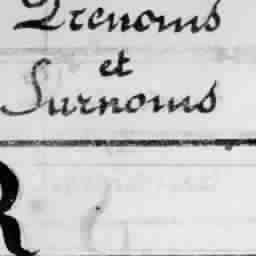 Prenoms
et
Surnoms
R